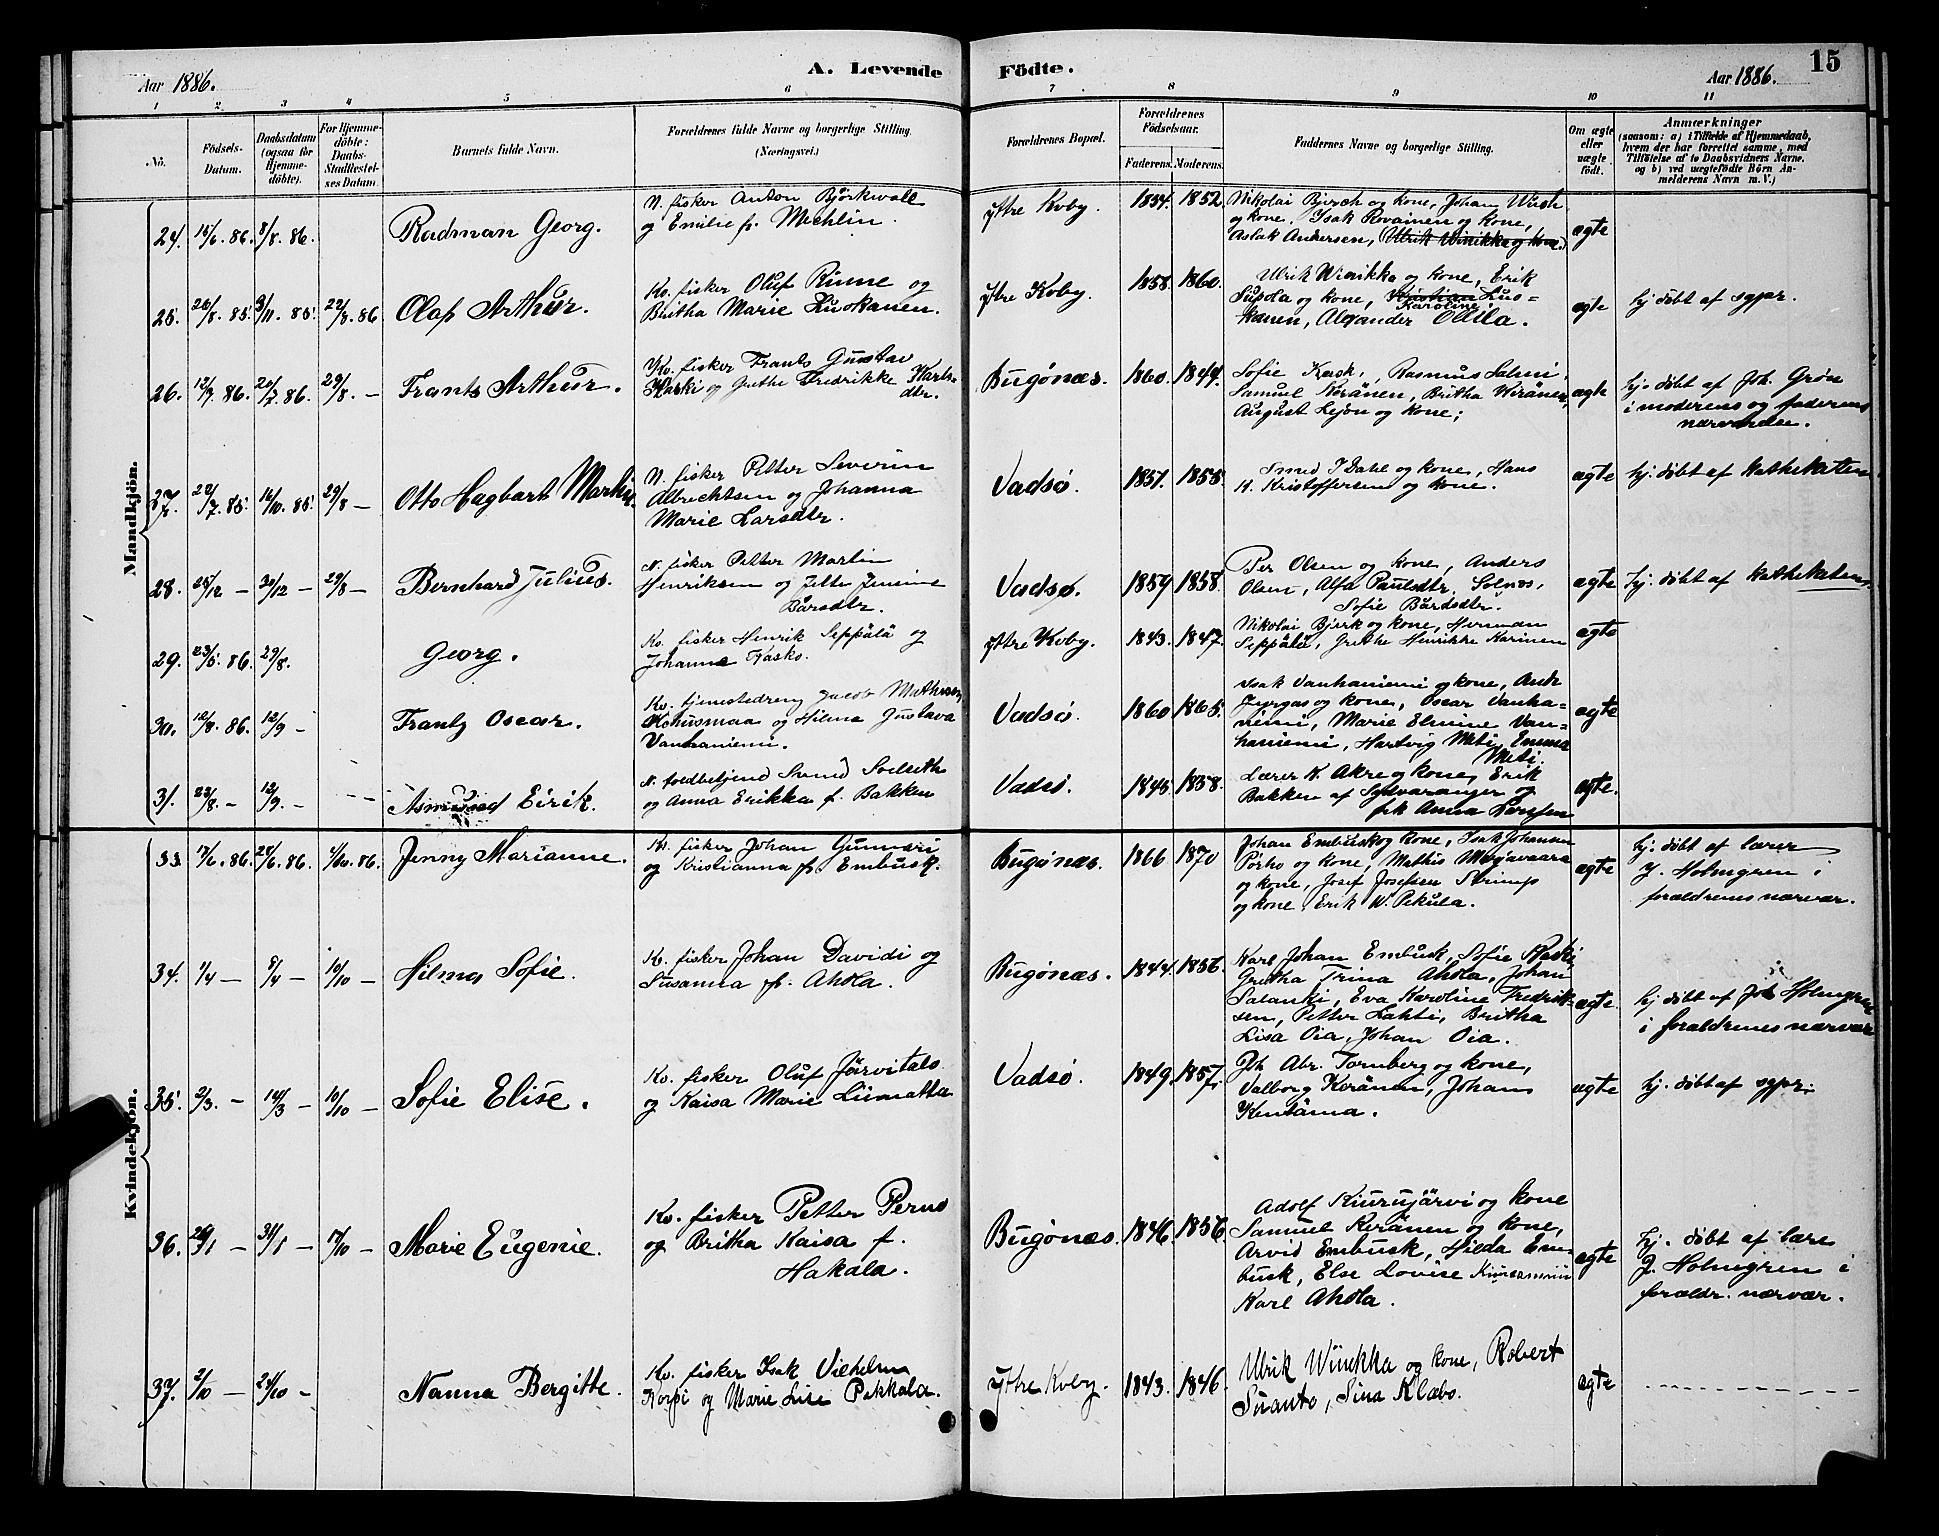 Aar 1886.
A. Levende
Födte.
Aar 1886.
15
1 2 3 4 5 6 7 8 9 10 11
No.
Födsels-
Datum.
Daabsdatum
(ogsaa for
Hjemme-
döbte).
For Hjemme-
döbte:
Daabs-
Stadfæstel-
ses Datum.
Barnets fulde Navn.
Forældrenes fulde Navne og borgerlige Stilling.
(Næringsvei.)
Forældrenes Bopæl.
Forældrenes
Födselsaar.
Faderens. Moderens.
Faddernes Navne og borgerlige Stilling.
Om ægte
eller
uægte
födt.
Anmærkninger
(saasom: a) i Tilfælde af Hjemmedaab,
hvem der har forrettet samme, med
Tilföielse af to Daabsvidners Navne,
og b) ved uægtefödte Börn An-
melderens Navn m. V.)
Mandkjön.
24. 15/6. 86. 8/8. 86. Radman Georg.
N. fisker Anton Björkwall
og Emilie f. Michlin.
Yttre Kvby. 1854. 1852.
Nikolai Bjrch og kone, Johan Wich
og kone, Isak Rovainen og kone,
Aslak Andersen, (Ulrik Winikka og kone)
ægte
25. 20/8. 85. 9/11. 85. 22/8. 86 Olaf Arthur.
Kv. fisker Oluf Rinne og
Britha Marie Kuokanen.
Yttre Kvby. 1858. 1860.
Ulrik Winikka og kone, Erik
Supola og kone, Karoline Kuo-
kanen, Alexander Ollila.
ægte hj. döbt af sgpr.
26. 20/7. 86. 29/8. — Frants Arthur.
Kv. fisker Frants Gustav
Kaski og Grethe Fredrikke Karls-
dtr.
Bugönæs. 1860. 1844.
Sofie Kask, Rasmus Salmi,
Samuel Keränen, Britha Keränen,
August Lejon og kone;
ægte hj. döbt af Joh. Grön
i moderens og faderens
nærværelse.
27. 16/10. 85. 29/8 — Otto Hagbart Martin.
N. fisker Petter Severin
Albrechtsen og Johanna
Marie Larsdtr.
Vadsö. 1851. 1855.
Smed J Dahl og kone, Hans
H. Kristoffersen og kone.
ægte hj. döbt af Kathekaten
28. 25/12 — 30/12 — 29/8 — Bernhard Julius.
N. fisker Petter Martin
Henriksen og Jette Jensine
Bårsdtr.
Vadsø. 1859 1858.
Per Olsen og kone, Anders
Olsen, Alfa Paulsdtr. Solnes,
Sofie Bårdsdtr.
ægte hj. döbt af Kathekaten
29. 23/5. 86. 29/8. Georg.
Kv. fisker Henrik Seppälä og
Johanne Kasko.
Yttre Kvby. 1843. 1847.
Nikolai Bjerk og kone, Herman
Seppälä, Grethe Henrikke Karinen
ægte
30. 12/8. 86. 12/9 — Frantz Oscar.
Kv. tjenestedreng Jacob Mathisen
Kohusmaa og Hilma Gustava
Vanhaniemi.
Vadsö. 1860 1865.
Isak Vanhaniemi og kone, And.
Jyrgas og kone, Oscar Vanha-
niemi, Marie Elmine Van-
haniemi, Hartvig Meti, Emma
Meti.
ægte
31. 23/8. — 12/9. — Asmund Eirik.
N. toldbetjend Svend Soelseth
og Anna Erikka f. Bakken
Vadsö. 1845. 1858.
Lærer K. Akre og kone, Erik
Bakken af Sydvaranger og
frk Anna Larssen
ægte.
Kvindekjön.
33. 17/6. 86. 28/6. 86. 4/10. 86. Jenny Marianne.
Kv. fisker Johan Gunnari
og Kristianna f. Embusk.
Bugönæs. 1866 1870
Johan Embusk og kone, Isak Johansen
Porho og kone, Mathis Majavaara
og kone, Josef Josefsen Strimp
og kone, Erik W. Pekula.
ægte hj. döbt af lærer
J. Holmgren i
forældrenes nærvær.
34. 1/4 — 8/4 — 10/10 — Hilma Sofie.
Kv. fisker Johan Davidi og
Susanna f. Ahola.
Bugönæs. 1844. 1856.
Karl Johan Embusk, Sofie Kaski,
Gretha Trina Ahola, Johan
Salanki, Eva Karoline Fredrik-
sen, Petter Lahti, Britha
Lisa Oia, Johan Oia.
ægte hj döbt af Joh Holmgren
i forældrenes nærvær
35. 2/3. — 14/3 — 10/10 — Sofie Elise.
Kv. fisker Oluf Järvitalo
og Kaisa Marie Liimatta
Vadsö. 1849. 1857.
Joh Abr. Tornberg og kone,
Valborg Keränen, Johan
Kentäma.
ægte hj. döbt af sgpr.
36. 31/1 — 17/10 — Marie Eugenie.
Kv. fisker Petter Perno
og Britha Kaisa f.
Hakala.
Bugönæs. 1846. 1856.
Adolf Kiurujärvi og kone
Samuel Keränen og kone,
Arvid Embusk, Hilda Em-
busk, Else Lovise
Karl Ahola.
ægte hj. döbt af lære
J. Holmgren i
forældr. nærvær.
37. 2/10 — 24/10 — Nanna Bergitte.
Kv. fisker Isak Vilhelm
Korpi og Marie Lise Pekkala.
Yttre Kvby. 1843. 1846.
Ulrik Winikka og kone, Robert
Suanto, Sina Klabo.
ægte